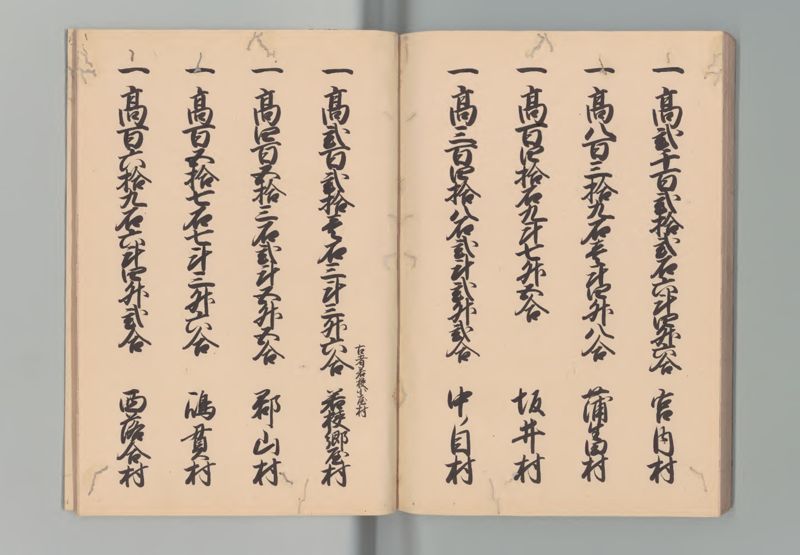 一 高弐千百弐拾弐石六斗四升六合 宮内村
一 高八百三拾九石壱斗四升八合 蒲生田村
一 高百四拾石九斗七升五合 坂井村
一 高三百四拾八石弐斗弐升弐合 中ノ目村
古者若狭小屋村
一 高弐百弐拾壱石三斗三升六合 若狭郷屋村
一 高四百五拾三石弐斗五升五合 郡山村
一 高百五拾七石七斗三升六合 鴻貫村
一 高百六拾九石六斗四升弐合 西落合村